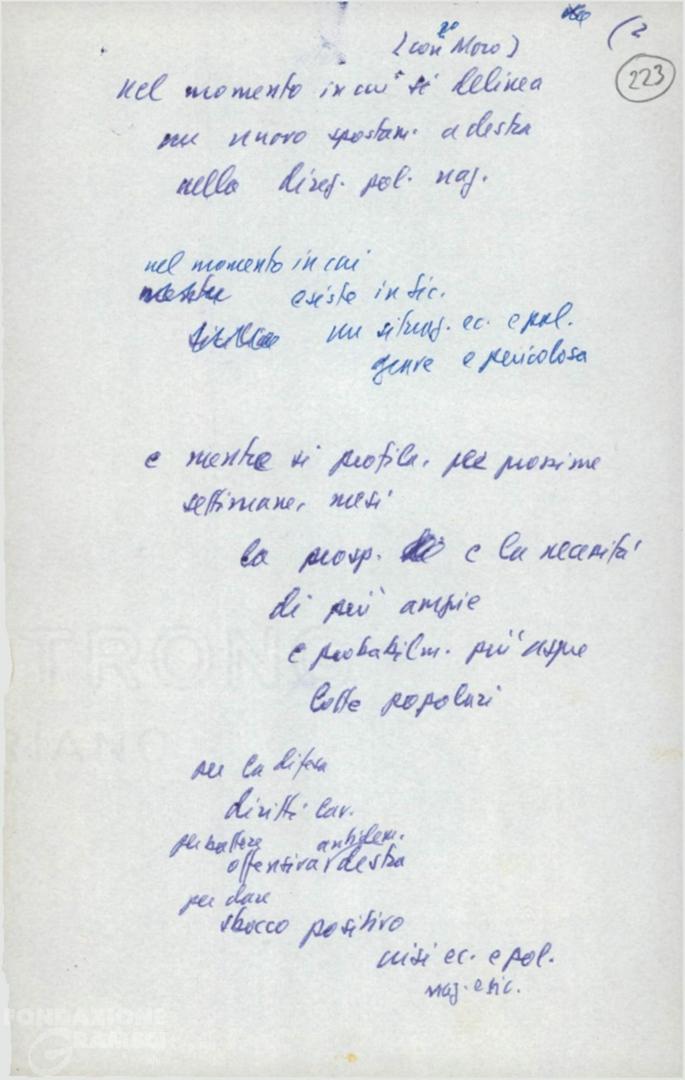 (2
(con Moro)
223
nel momento in cui si delinea
un nuovo spostam. a destra
nella direz. pol. naz.
nel momento in cui
mentre esiste in Sic.
un situaz. ec. e pol.
grave e pericolosa
e mentre si profila, per prossime
settimane, mesi
la prosp. e la necessità
di più ampie
e probabilm. più aspre
lotte popolari
per la difesa
diritti lav.
per battere antidem.
offensiva destra
per dare
sbocco positivo
crisi ec. e pol.
naz. e sic.
TRONO
FONDAZIONE
GRAMSCI